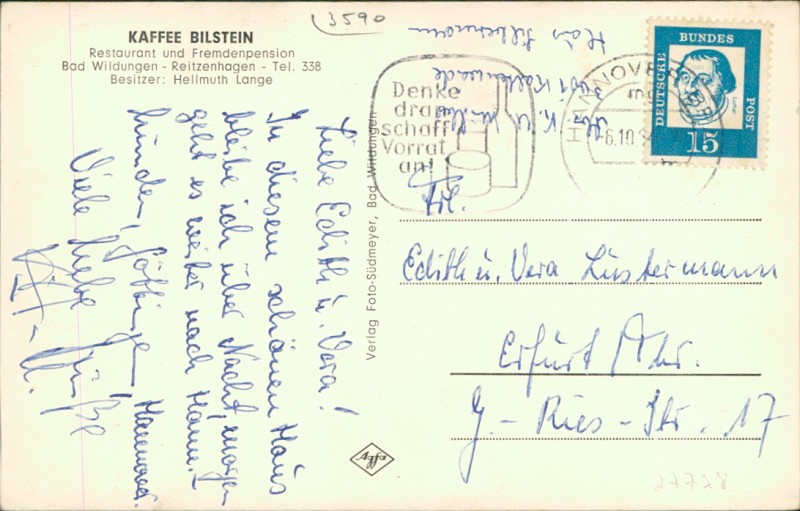 (3590
KAFFEE BILSTEIN
Restaurant und Fremdenpension
Bad Wildungen - Reitzenhagen - Tel. 338
Besitzer: Hellmuth Lange
Liebe Edith u. Vera!
In diesem schönen Haus
bleibe ich über Nacht, morgen
geht es weiter nach Hann.-
Münden, Göttingen, Hannover.
Viele liebe Grüße
Verlag Foto-Südmeyer, Bad Wildungen
Agfa
Denke
dran
schaff
Vorrat
an!
HANNOVER
6.10.
DEUTSCHE
BUNDES
POST
15
Abs. K. U.
3001
Edith u. Vera Lüstermann
Erfurt
J.-Ries-Str. 17